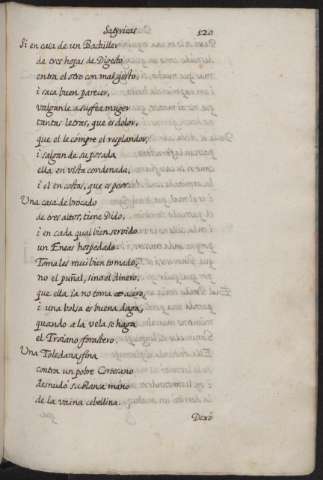 Satyricas 120
Si en casa de un Bachiller
de tres hojas de Digesto
entra el otro con mal gesto,
i saca buen parecer,
valganle a su muger
tantas letras, que es dolor,
que el le compre el resplandor,
i salgan de su posada
ella en vista condenada,
i el en costas, que es peor.
Una casa de brocado
de tres altos, tiene Dido,
i en cada qual bien servido
un Eneas hospedado
Tomales mui bien tomado,
no el puñal, sino el dinero,
que ella la no toma
i una bolsa es buena daga,
quando a la vela se haga
el Troiano forastero
Una Toledana fina
contra un pobre Cortesano
desnudó su blanca mano
de la vaina cebellina.
Dexó